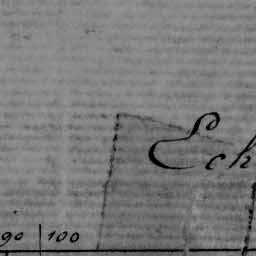 Ech
90 100